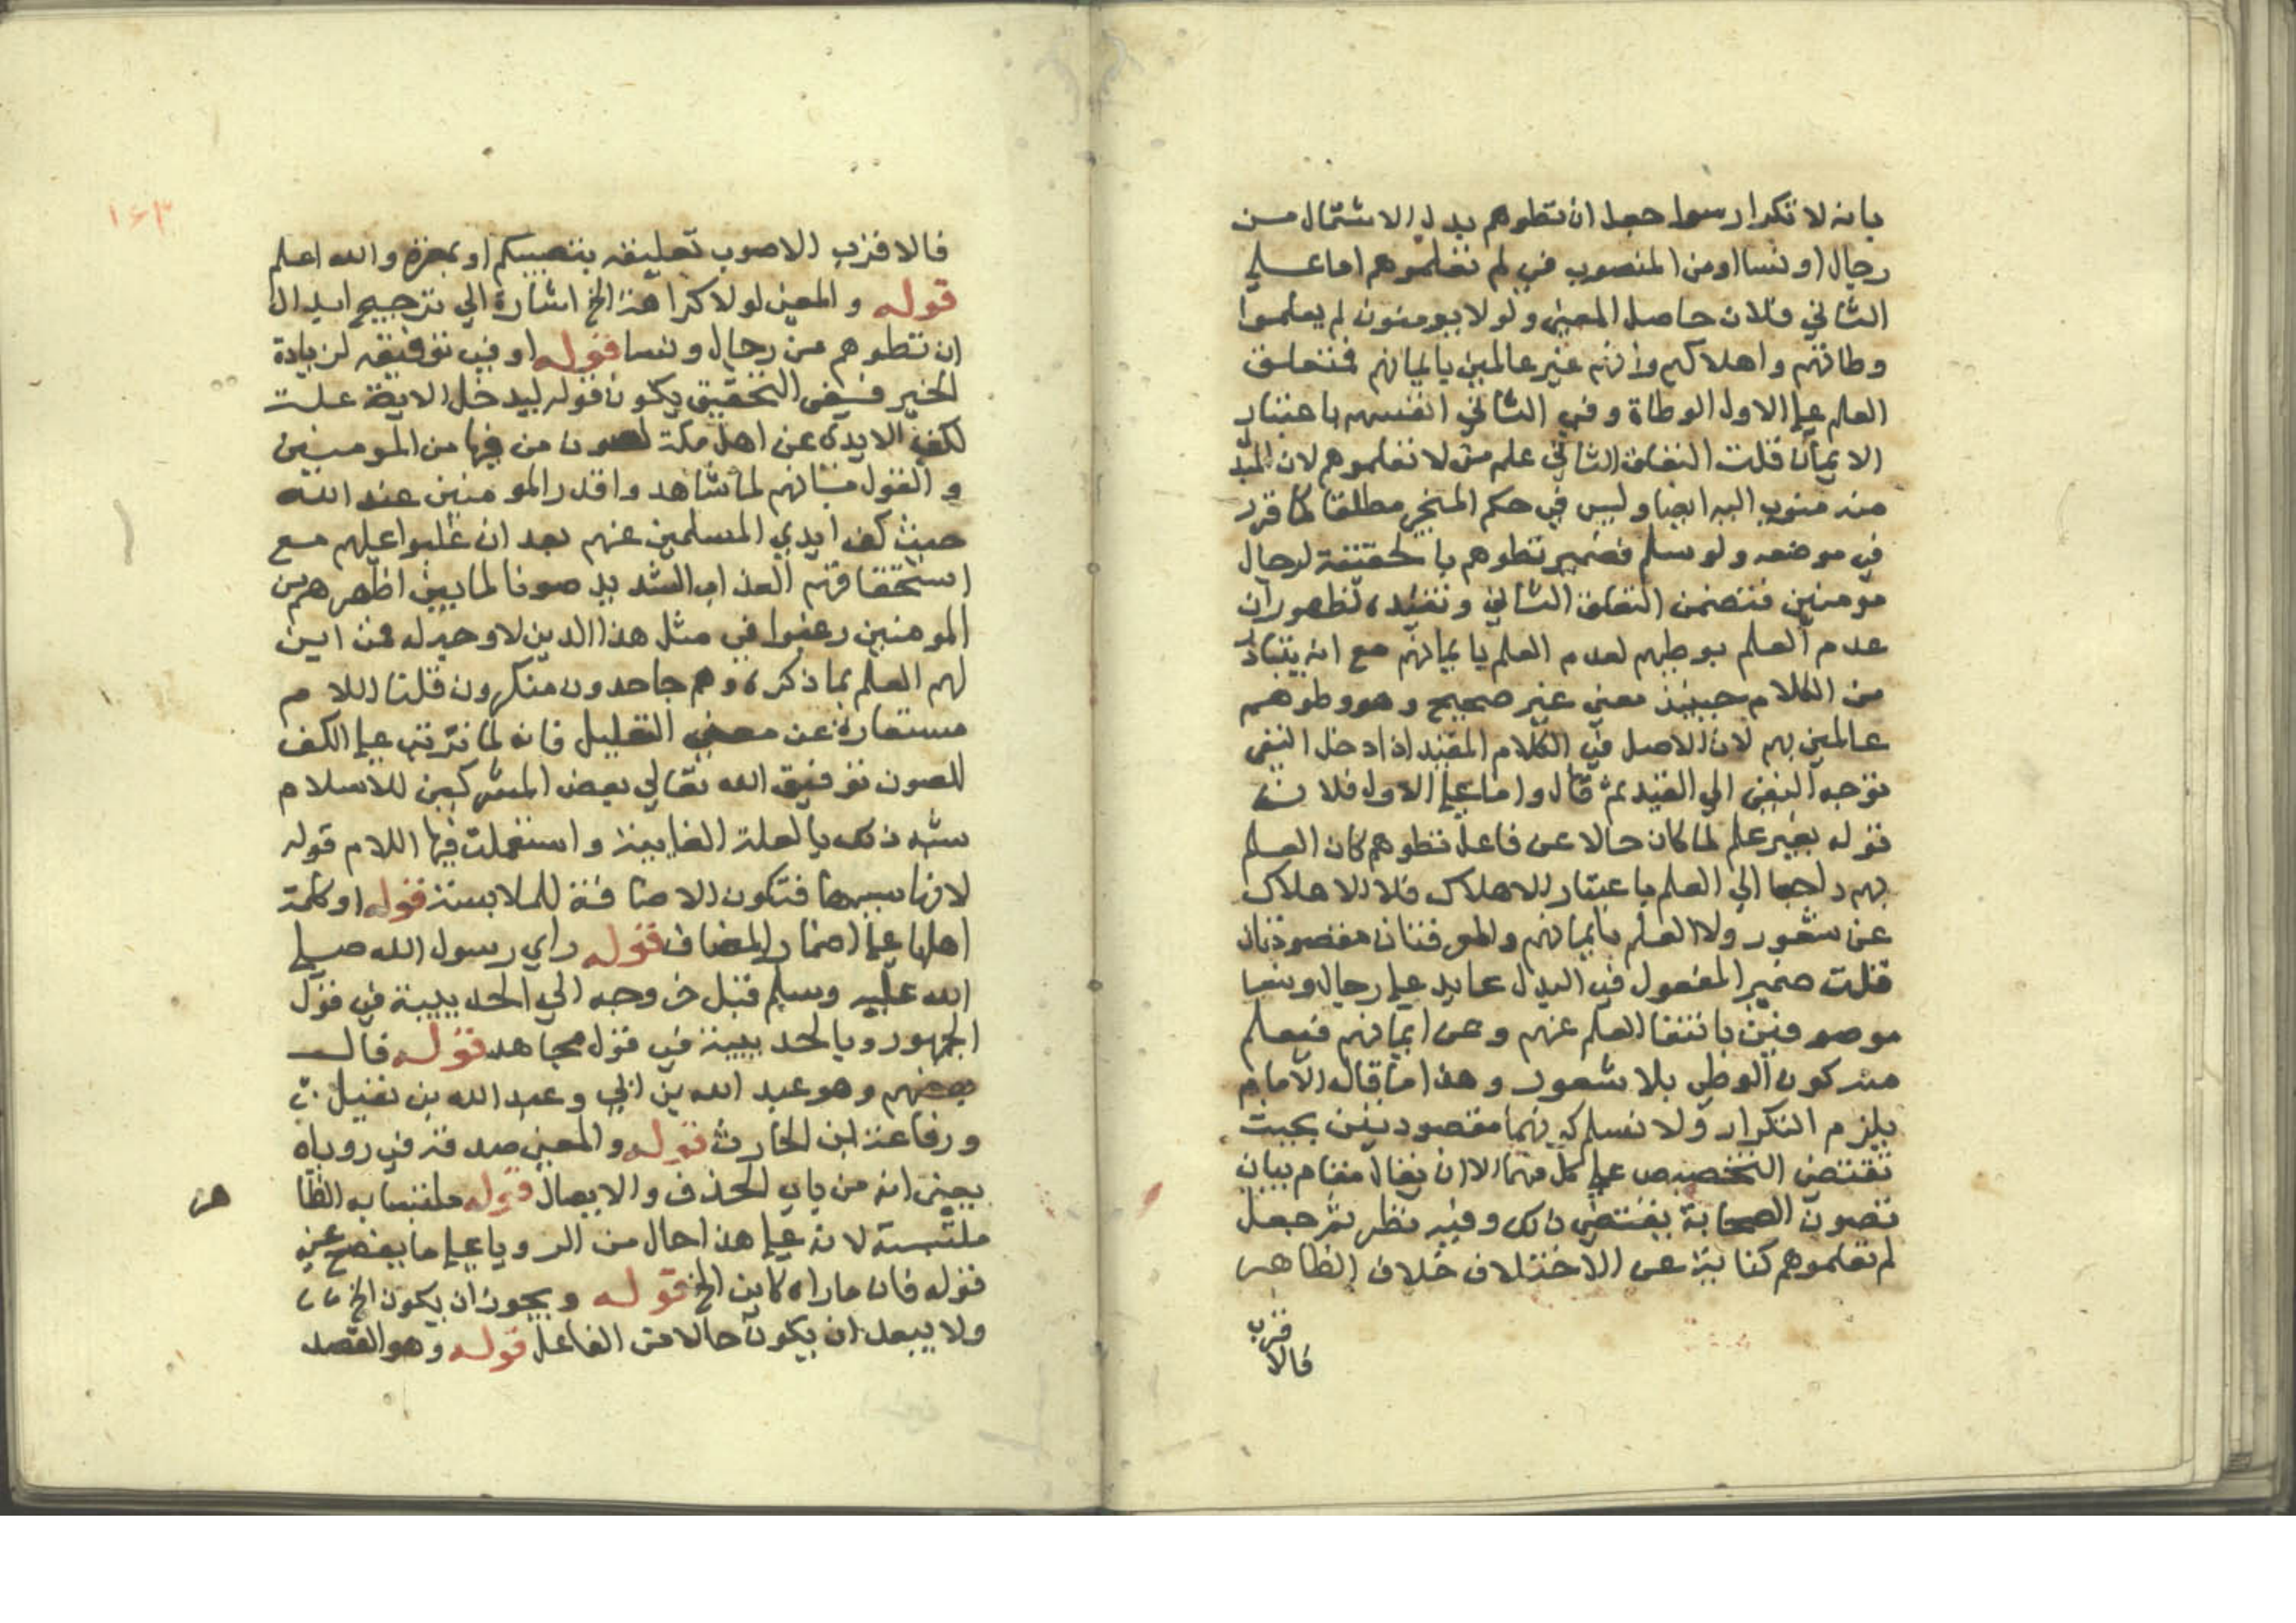 بانه لا تكرار سوا جعل ان تطوهم بدل الاشتمال من
رجال او نسا او من المنصوب في لم تعلموهم اما علي
الثاني فلان حاصل المعني ولولا مومنون لم يعلموا
وطاتهم واهلاكهم وانتم غير عالمين بايمانهم فمتعلق
العلم علي الاول الوطاة وفي الثاني انفسهم باعتبار
الايمان قلت التعلق الثاني علم من لا تعلموهم لان المبدل
منه منوي اليه ايضا وليس في حكم المنحي مطلقا كما قرر
في موضعه ولو سلم فضمير تطوهم بالحقيقة لرجال
مومنين فتضمن التعلق الثاني وتقييده لظهور ان
عدم العلم بوطيهم لعدم العلم بايمانهم مع انه يتبادر
من الكلام حينيذ معني غير صحيح وهو وطوهم
عالمين بهم لان الاصل في الكلام المقيد اذا دخل النفي
توجه النفي الي القيد ثم قال واما علي الاول فلان
قوله بغير علم لما كان حالا عن فاعل تطوهم كان العلم
بهم راجعا الي العلم باعتبار الاهلاك فلا الاهلاك
عن شعور ولا العلم بايمانهم والموفتان مقصودتان
قلت ضمير المفعول في البدل عايد علي رجال ونسا
موصوفين بانتفا العلم عنهم وعن ايمانهم فيعلم
منه كون الوطي بلا شعور وهذا ما قاله الامام
يلزم التكرار ولا نسلم كونهما مقصودتين بحيث
تقتضي التخصيص علي كل منهما الا ان يقال مقام بيان
تصون الصحابة يقتضي ذلك وفيه نظر ثم جعل
لم تعلموهم كناية عن الاختلاف خلاف الظاهر
فالاقرب
١٦٣
فالاقرب الاصوب تعليقه بنصيبكم او بمعرة والله اعلم
قوله والمعني لولا كراهة الخ اشارة الي ترجيح ابدال
ان تطوهم من رجال ونسا قوله او في توفيقه لزيادة
الخير فـفي التحقيق يكون قوله ليدخل الاية علت
لكف الايدي عن اهل مكة لصون من فيها من المومنين
والقول فانهم لما شاهدوا قدر المومنين عند الله
حيث كف ايدي المسلمين عنهم بعد ان غلبوا عليهم مع
استحقاقهم العذاب الشديد صونا لما بين اظهرهم من
المومنين رغبوا في مثل هذا الدين لا وجه له فمن اين
لهم العلم بما ذكره وهم جاحدون منكرون قلنا اللام
مستعارة عن معني التعليل فانه لما ترتب علي الكف
للصون توفيق الله تعالي بعض المشركين للاسلام
شبه ذلك بالعلة الغايية واستعملت فيها اللام قوله
لانها سببها فتكون الاضافة للملابسة قوله او كلمة
اهلها علي اضمار المضاف قوله راي رسول الله صلي
الله عليه وسلم قبل خروجه الي الحديبية في قول
الجمهور وبالحديبية في قول مجاهد قوله قال
بعضهم وهو عبد الله بن ابي وعبد الله بن نفيل
ورفاعة ابن الحارث قوله والمعني صدقه في روياه
يعني انه من باب الحذف والايصال قوله ملتبسا به الظاهر
ملتبسة لانه علي هذا حال من الرويا علي ما يفصح عن
قوله فان ماراه كاين الخ قوله ويجوز ان يكون الخ
ولا يبعد ان يكون حالا من الفاعل قوله وهو القصد